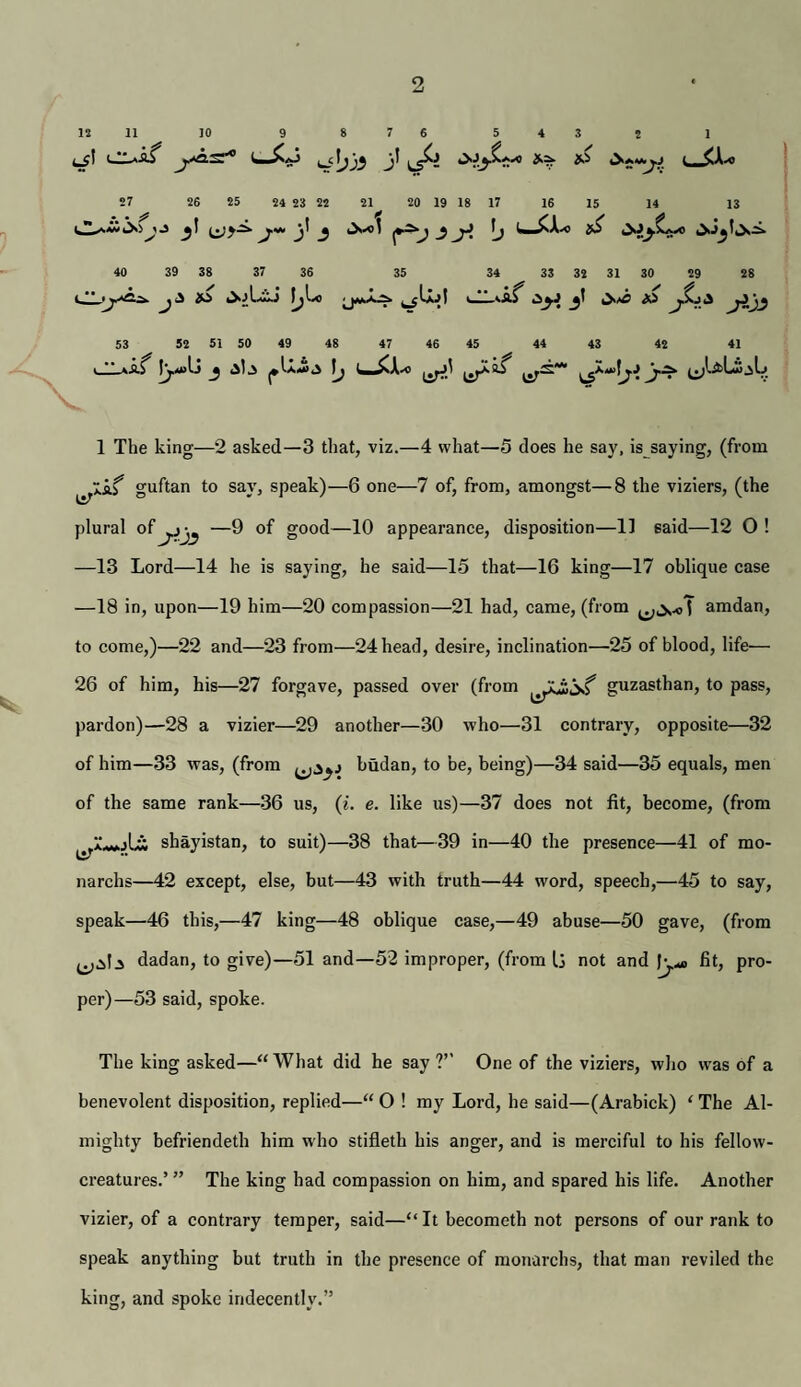 2
12 11 10 9 8 7 6 5 4 3 2 1
ملک پرسید که چه میگوید یکی از وزرای نیک محضر گفت ای
27 26 25 24 23 22 21 20 19 18 17 16 15 14 13
خداوند میگوید که ملک را بر و رحم آمد و از سر خون او درگذشت
40 39 38 37 36 35 34 33 32 31 30 29 28
وزیر دیگر که ضد او بود گفت ابنای جنس مارا نشاید که در حضرت
53 52 51 50 49 48 47 46 45 44 43 42 41
بادشاهان جز براستی سخن گفتن این ملک را دشنام داد و ناسزا گفت
1 The king—2 asked—3 that, viz.—4 what—5 does he say, is_saying, (from
گفتن guftan to say, speak)—6 one—7 of, from, amongst—8 the viziers, (the
plural of وزير —9 of good—10 appearance, disposition—11 said—12 O !
—13 Lord—14 he is saying, he said—15 that—16 king—17 oblique case
—18 in, upon—19 him—20 compassion—21 had, came, (from آمدن amdan,
to come,)—22 and—23 from—24 head, desire, inclination—25 of blood, life—
26 of him, his—27 forgave, passed over (from گذشتن guzasthan, to pass,
pardon)—28 a vizier—29 another—30 who—31 contrary, opposite—32
of him—33 was, (from بودن būdan, to be, being)—34 said—35 equals, men
of the same rank—36 us, (i. e. like us)—37 does not fit, become, (from
شایستن shāyistan, to suit)—38 that—39 in—40 the presence—41 of mo-
narchs—42 except, else, but—43 with truth—44 word, speech,—45 to say,
speak—46 this,—47 king—48 oblique case,—49 abuse—50 gave, (from
دادن dadan, to give)—51 and—52 improper, (from نا not and سزا fit, pro-
per)—53 said, spoke.
The king asked—“What did he say ?” One of the viziers, who was of a
benevolent disposition, replied—“ O ! my Lord, he said—(Arabick) ‘ The Al-
mighty befriendeth him who stifleth his anger, and is merciful to his fellow-
creatures.’ ” The king had compassion on him, and spared his life. Another
vizier, of a contrary temper, said—“It becometh not persons of our rank to
speak anything but truth in the presence of monarchs, that man reviled the
king, and spoke indecently.”